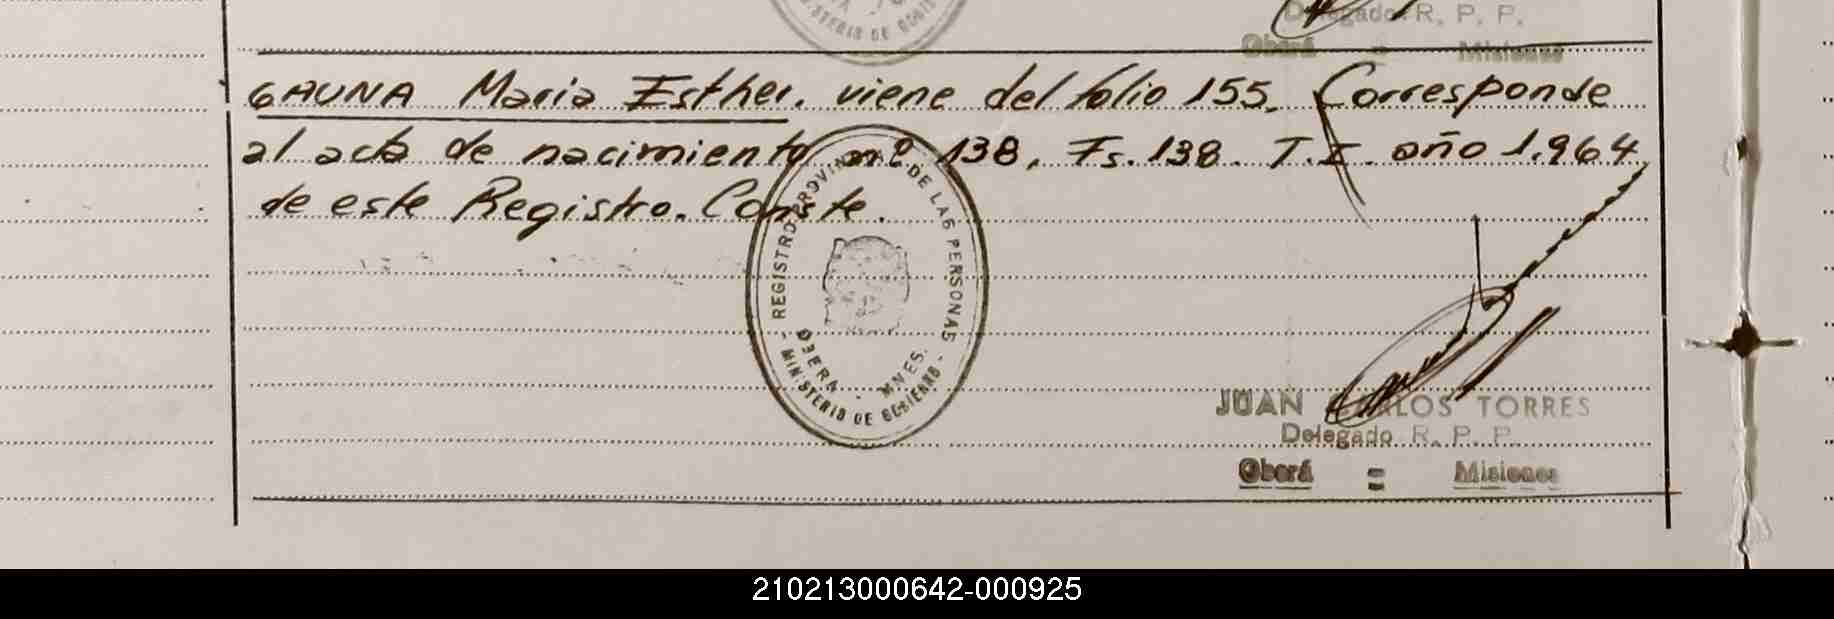 MINISTERIO DE GOBIER
Delegado R. P. P.
Oberá = Misiones
GAUNA Maria Esther. viene del folio 155. Corresponde
al acta de nacimiento nº 138, Fs. 138. T.I. año 1.964
de este Registro. Conste.
REGISTRO PROVINCIAL DE LAS PERSONAS
OBERA - MNES.
- MINISTERIO DE GOBIERNO -
JUAN CARLOS TORRES
Delegado R. P. P.
Oberá = Misiones
210213000642-000925